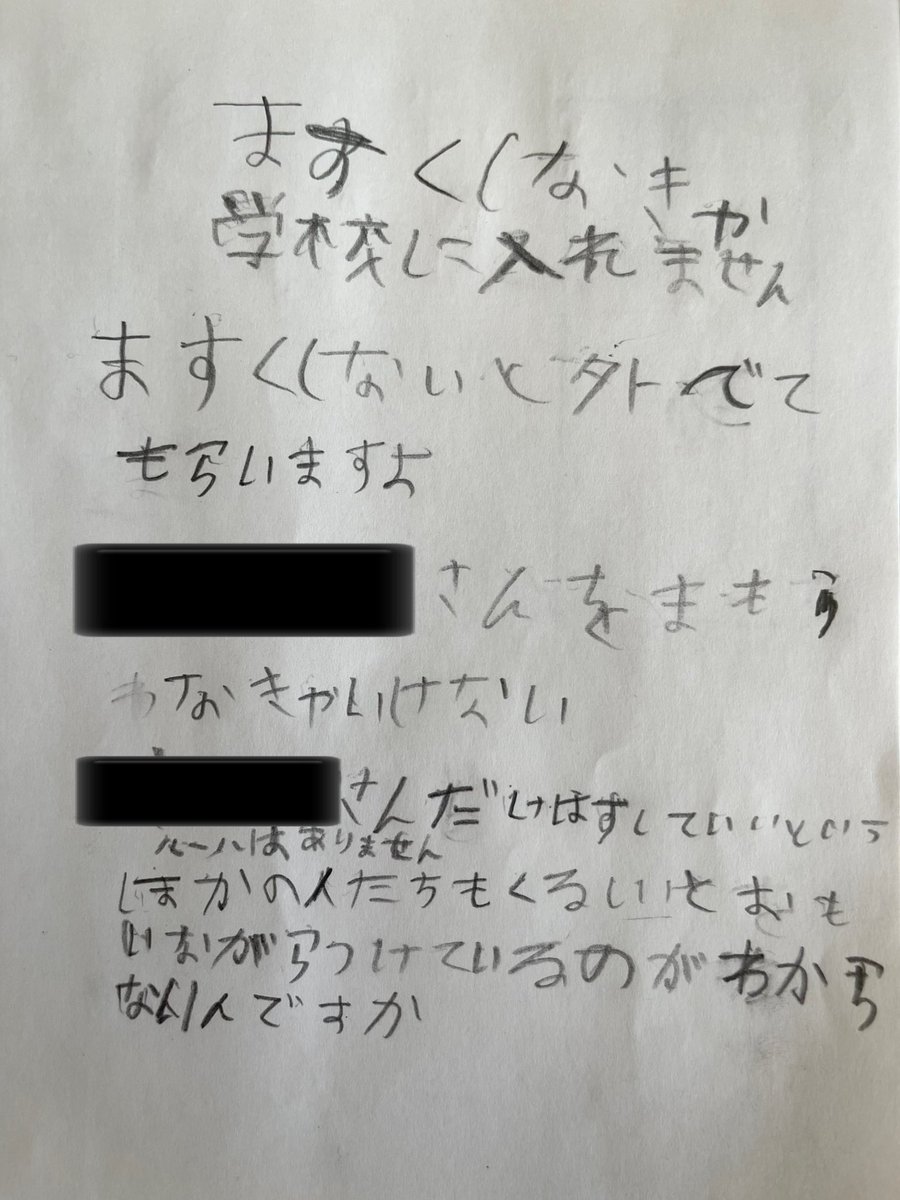 ますくしなき
学校に入れませんか
ますくしないと外でて
もらいますよ
さんをまもら
わなきゃいけない
さんだけはずしていいという
ルールはありません
ほかの人たちもくるいとおも
いながらつけているのがわから
ないんですか